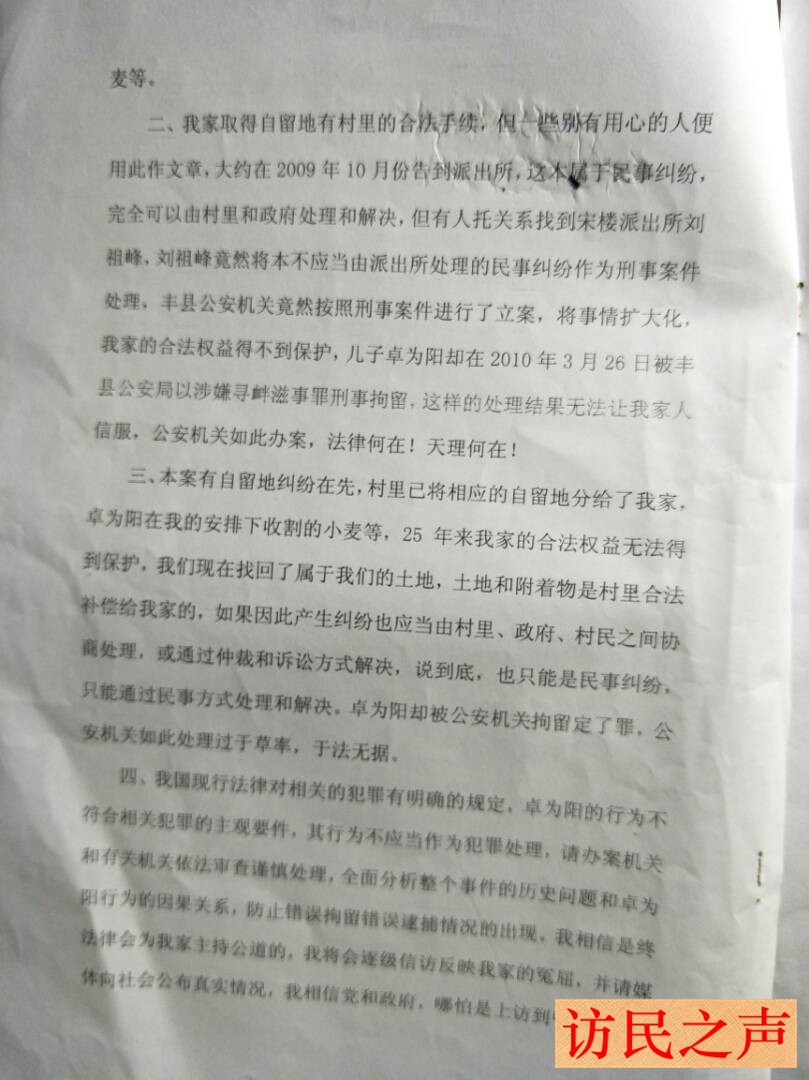 麦等。
二、我家取得自留地有村里的合法手续，但一些别有用心的人便
用此作文章，大约在 2009 年 10 月份告到派出所，这本属于民事纠纷，
完全可以由村里和政府处理和解决，但有人托关系找到宋楼派出所刘
祖峰，刘祖峰竟然将本不应当由派出所处理的民事纠纷作为刑事案件
处理，丰县公安机关竟然按照刑事案件进行了立案，将事情扩大化，
我家的合法权益得不到保护，儿子卓为阳却在 2010 年 3 月 26 日被丰
县公安局以涉嫌寻衅滋事罪刑事拘留，这样的处理结果无法让我家人
信服，公安机关如此办案，法律何在！天理何在！
三、本案有自留地纠纷在先，村里已将相应的自留地分给了我家，
卓为阳在我的安排下收割的小麦等，25 年来我家的合法权益无法得
到保护，我们现在找回了属于我们的土地，土地和附着物是村里合法
补偿给我家的，如果因此产生纠纷也应当由村里、政府、村民之间协
商处理，或通过仲裁和诉讼方式解决，说到底，也只能是民事纠纷，
只能通过民事方式处理和解决。卓为阳却被公安机关拘留定了罪，公
安机关如此处理过于草率，于法无据。
四、我国现行法律对相关的犯罪有明确的规定，卓为阳的行为不
符合相关犯罪的主观要件，其行为不应当作为犯罪处理，请办案机关
和有关机关依法审查谨慎处理，全面分析整个事件的历史问题和卓为
阳行为的因果关系，防止错误拘留错误逮捕情况的出现。我相信是终
法律会为我家主持公道的，我将会逐级信访反映我家的冤屈，并请媒
体向社会公布真实情况，我相信党和政府，哪怕是上访到
访民之声